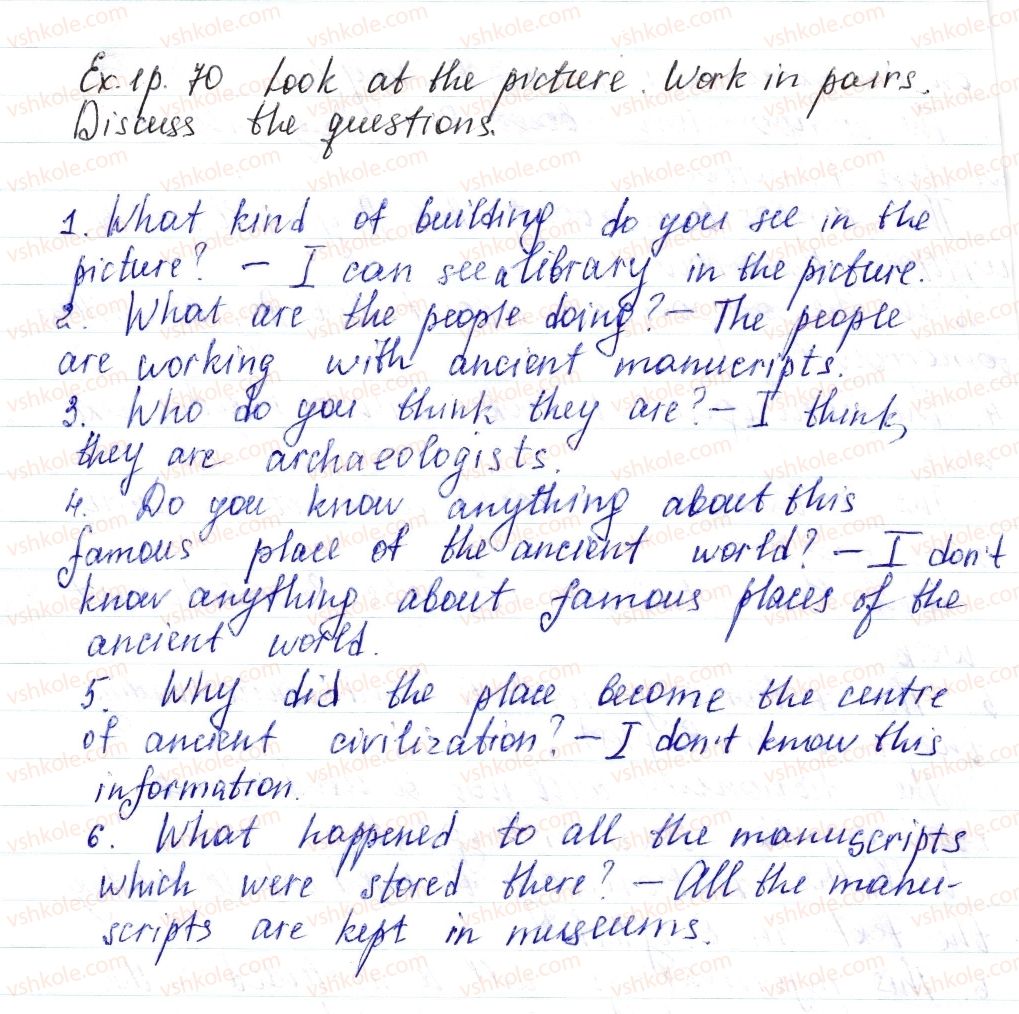 Ex. 1 p. 70 Look at the picture. Work in pairs.
Discuss the questions.
1. What kind of building do you see in the
picture? – I can see a library in the picture.
2. What are the people doing? – The people
are working with ancient manucripts.
3. Who do you think they are? – I think,
they are archaeologists.
4. Do you know anything about this
famous place of the ancient world? – I don't
know anything about famous places of the
ancient world.
5. Why did the place become the centre
of ancient civilization? – I don't know this
information.
6. What happened to all the manuscripts
which were stored there? – All the manu-
scripts are kept in museums.
vshkole.com